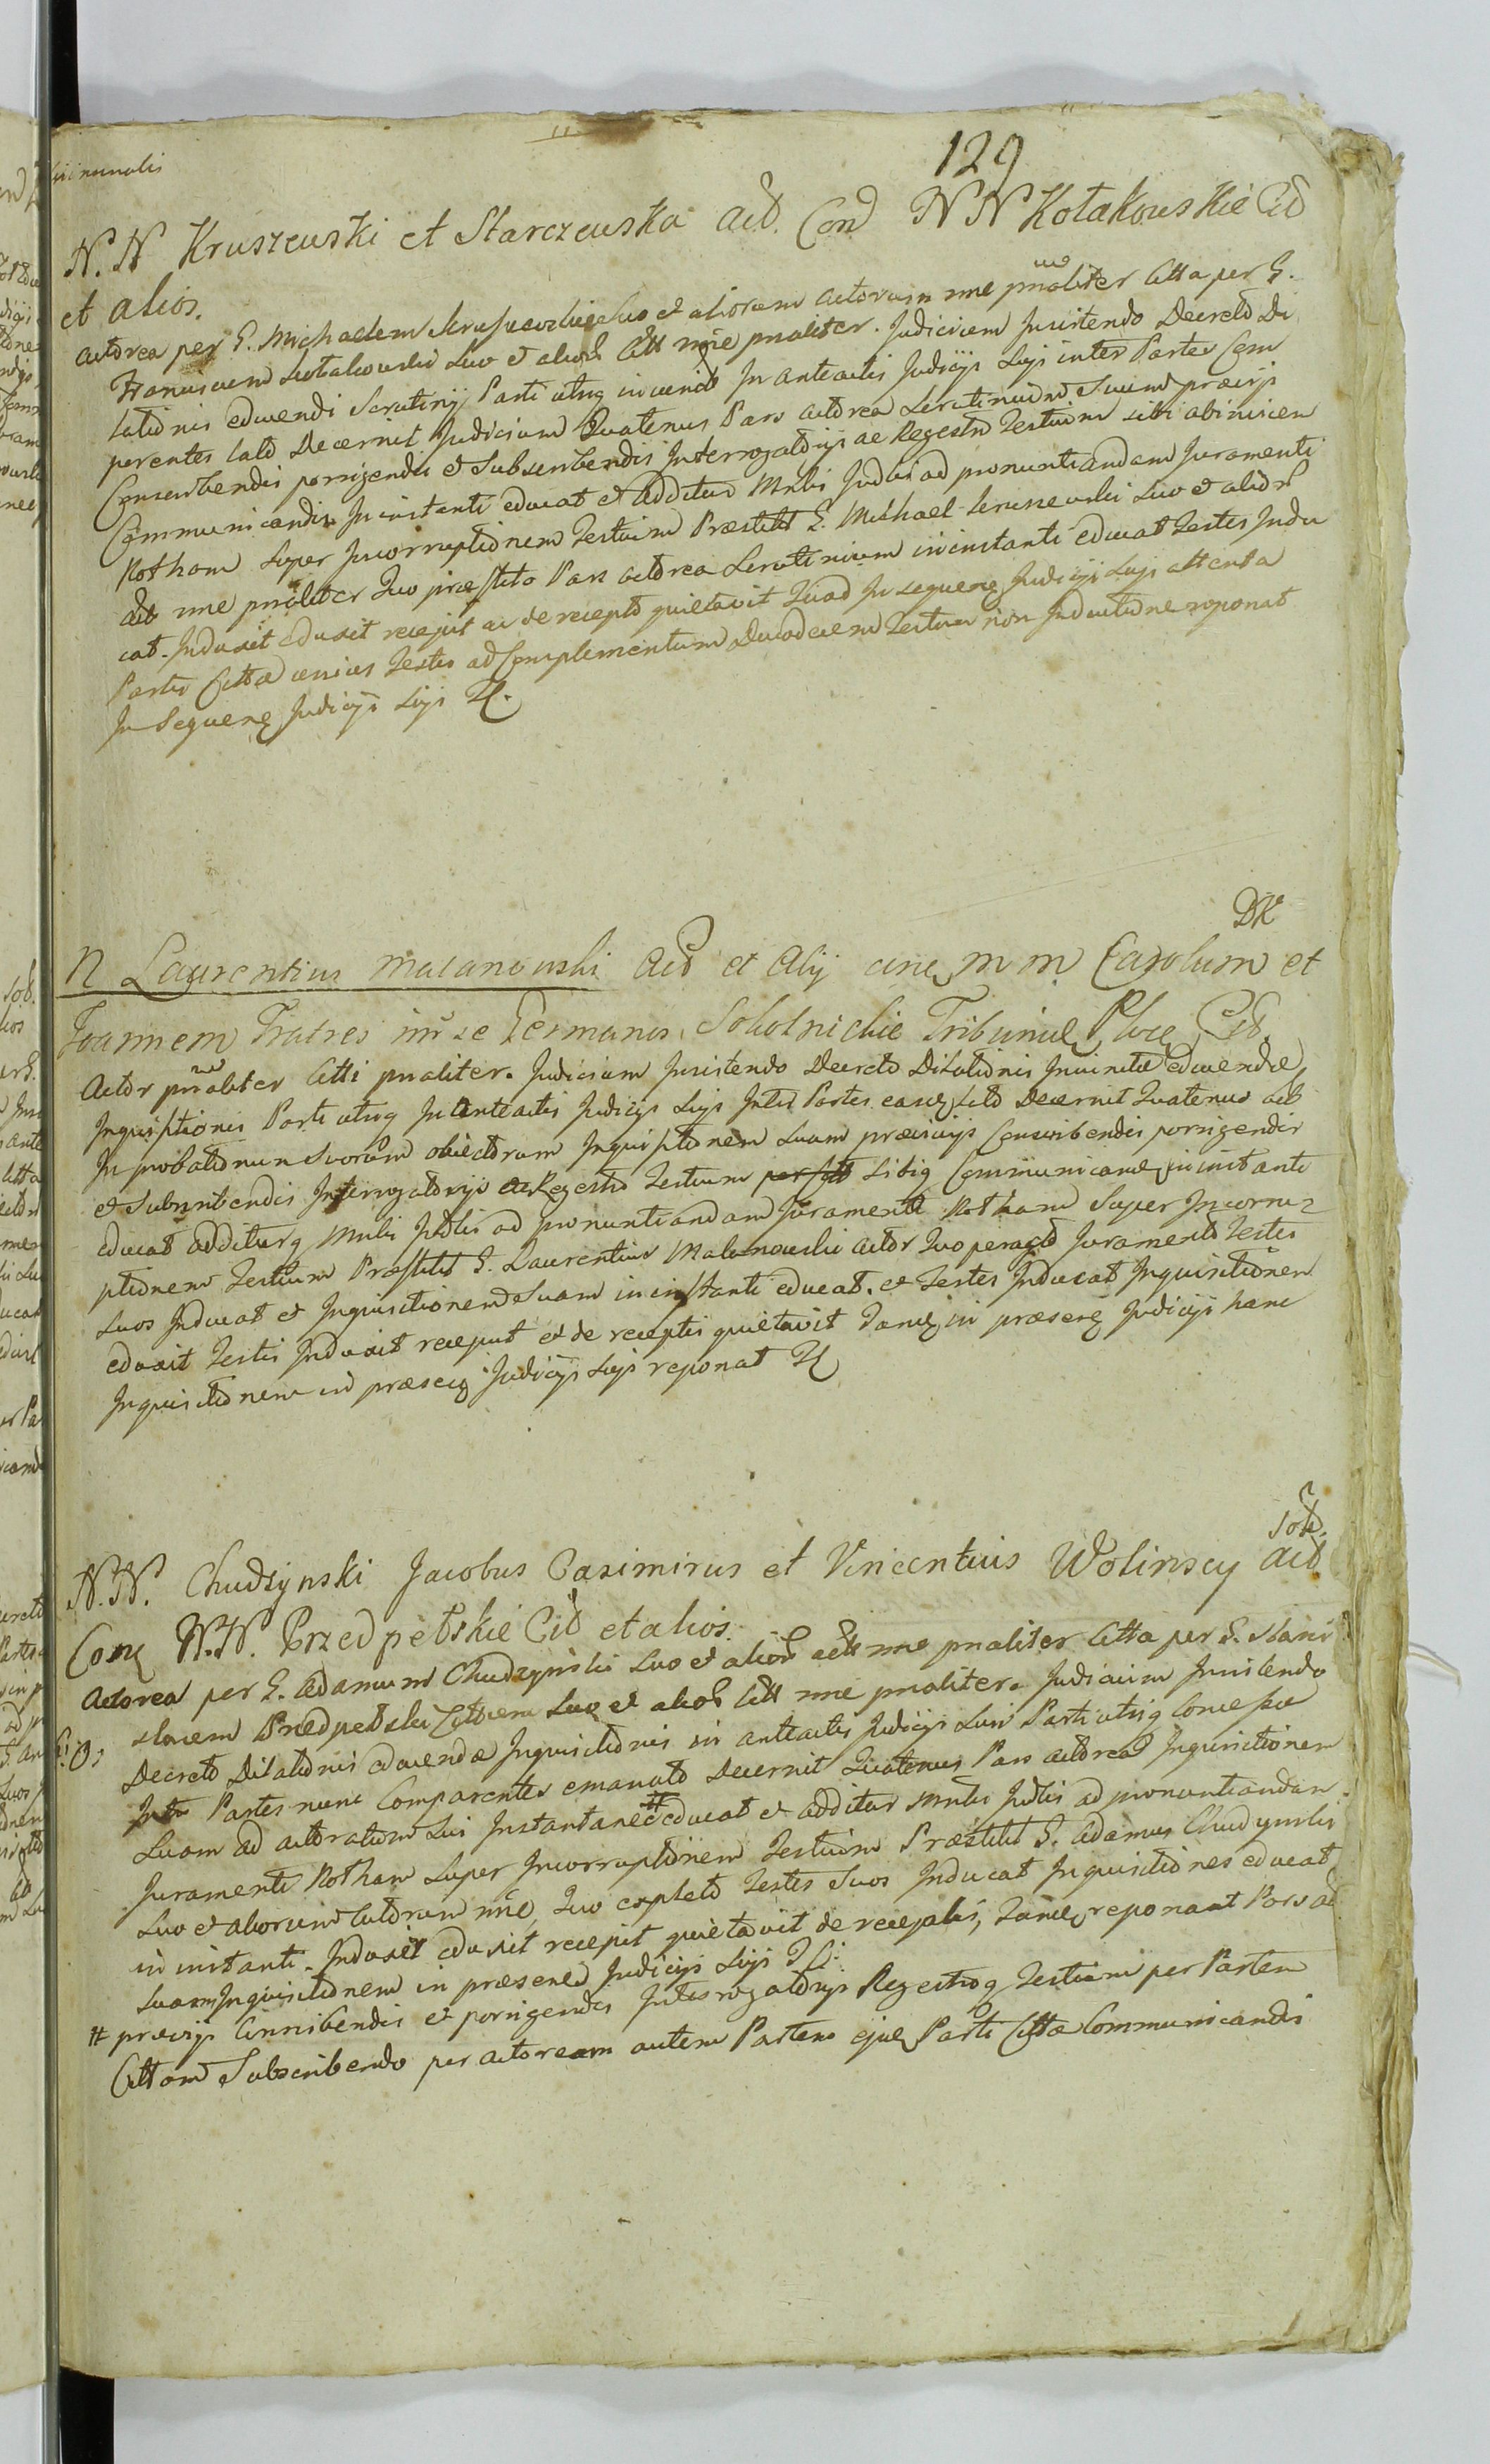 129
N. N Kruszewski et Starczewska Act. Con N N Kołakowskie Cit
et alios.
Actorea per G. Michaelem Kruszewski suo et aliorum Actorum nne pnaliter Citta per G.
Franciscum Kołakowski suo et alior Citt nne pnaliter. Judicium Insistendo Decreto Di
lationis educendi Scrutinij Parti utrq in anteactis Judicijs Sijs inter Partes Com
parentes lato Decernit Judicium Quatenus Pars Actorea Scrutinium Suum praevijs
Conscribendis porrigendis et Subscribendis Interrogatorijs ac Regestro Testium sibi abinvicem
Communicandis In instanti educat et Additus Mnbi Judlis ad pronuntiandam Juramenti
Rotham Super Incorruptionem Testium Praestitit G. Michael Kruszewski Suo et alior
Act nne pnaliter Quo praestito Pars Actorea Scrutinium in instanti educat Testes Indu
cat. Induxit eduxit recepit ac de recepto quietavit Quod In sequenq Judicijs Sijs attenta
Partis Citta unius Testis ad Complementum Duodecem Testium non Inductione reponat
In Sequenq Judicijs Sijs
DK
N Laurentius Malanowski Act et Alij cinq M M Carolum et
Joannem Fratres inr se Germanos Sokolnickie Tribunił Ploc Cit.
Actor pnaliter Citti pnaliter. Judicium Insistendo Decreto Dilationis Invicem educendae
Inquisitionis Parti utrq In anteactis Judicijs Sijs Inter Partes easdq lato Decernit Quatenus Act
In probationem Suorum obiectorum Inquisitionem Suam praevijs Conscribendis porrigendis
et Subscribendis Interrogatorijs ac Regestro Testium Sibiq Communicand in instanti
educat additurq Mnbi Judlis ad pronuntiandam Juramenti Rotham Super Incorru
ptionem Testium Praestitit G. Laurentius Malanowski Actor Quo peracto Juramento Testes
Suos Inducat et Inquisitionem Suam in instanti educat. et Testes Inducat Inquisitionem
eduxit Testes Induxit recepit et de receptis quietavit Tandq in praesenq Judicijs hanc
Inquisitionem in praesenq Judicijs Sijs reponat
N. N. Chudzynski Jacobus Casimirus et Vincentius Wolinscy Act
Conq N. N. Przedpełskie Cit et alios.
Actorea per G. Adamum Chudzynski Suo et alior Act nne pnaliter Citta per G. Stanis
slaum Przedpełski Cittum Suo et alior Citt nne pnaliter. Judicium Insistendo
Decreto Dilationis educendae Inquisitionis in anteactis Judicijs Suis Parti utrq Concessae
Inter Partes nunc Comparentes emanato Decernit Quatenus Pars Actorea Inquisitionem
Suam ad actoratum Sui Instantanee # educat et additur Mnbi Judlis ad pronuntiandam
Juramenti Rotham Super Incorruptionem Testium Praestitit G. Adamus Chudzynski
Suo et aliorum Actorum nne, Quo expleto Testes Suos Inducat Inquisitiones educat
in instanti. Induxit eduxit recepit quietavit de receptis, Tandq reponat Pars Act
Suam Inquisitionem in praesened Judicijs Sijs
# praevijs Conscribendis et porrigendis Interrogatorijs Regestroq Testium per Partem
Cittam Subscribendo per Actoream autem Partem ejusq Parti Citta Communicandis